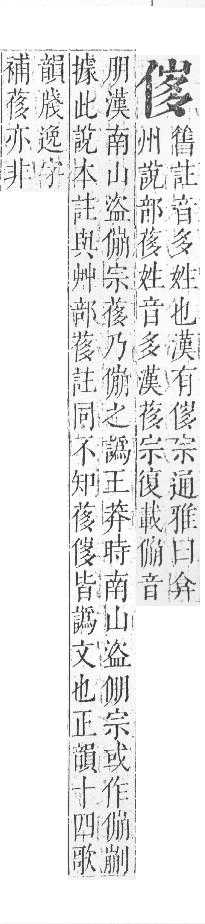 舊註音多姓也漢有宗通雅曰弇
州說部姓音多漢宗復載傰音
朋漢南山盜傰宗乃傰之譌王莽時南山盜倗宗或作傰剻
據此說本註與艸部註同不知皆譌文也正韻十四歌
韻牋逸字
補亦非